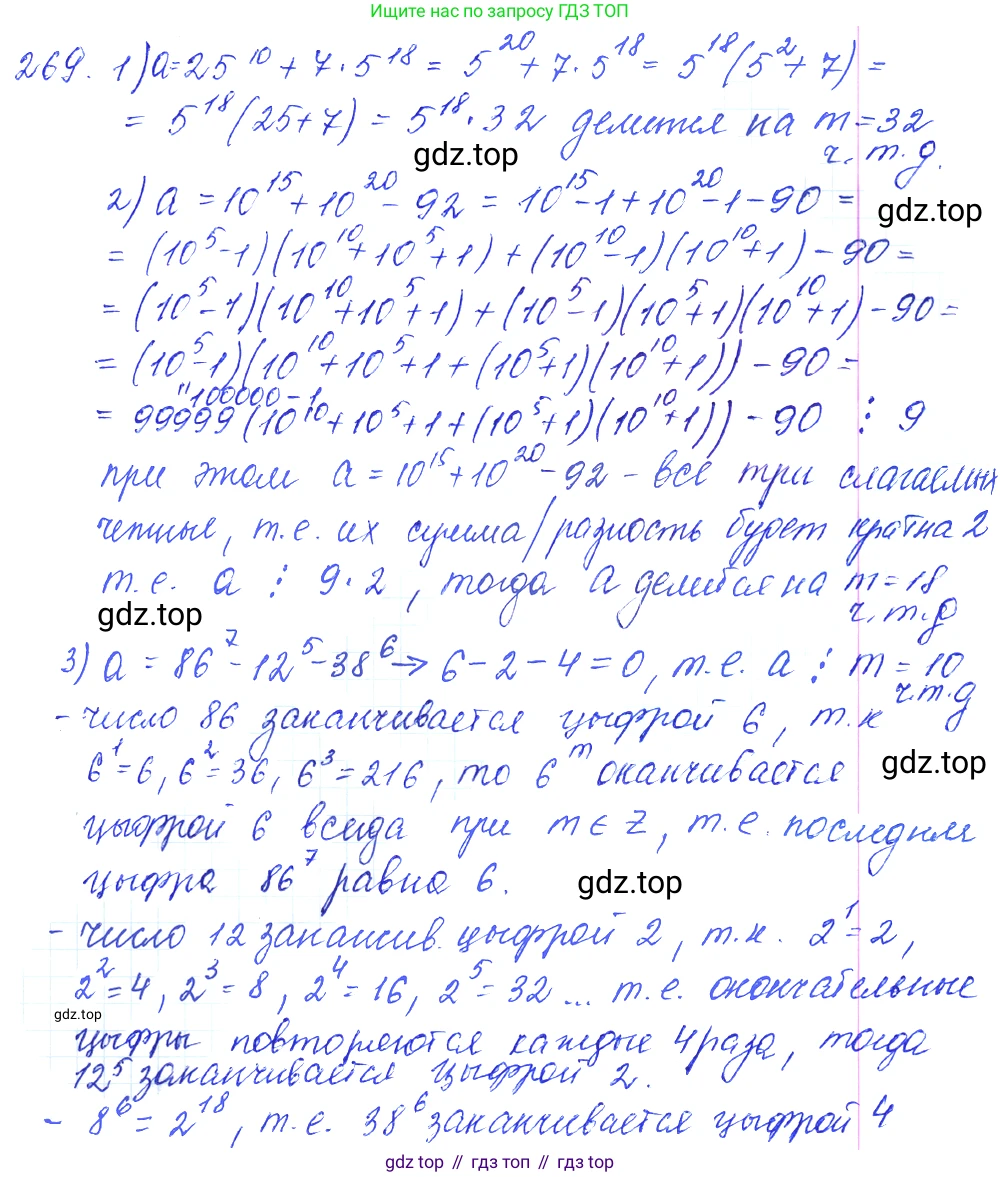 Ищите нас по запросу ГДЗ ТОП
269. 1) a = 25^10 + 7·5^18 = 5^20 + 7·5^18 = 5^18(5^2 + 7) =
= 5^18(25+7) = 5^18·32 делится на m = 32
ч.т.д.
gdz.top
2) a = 10^15 + 10^20 - 92 = 10^15 - 1 + 10^20 - 1 - 90 =
gdz.top
= (10^5 - 1)(10^10 + 10^5 + 1) + (10^10 - 1)(10^10 + 1) - 90 =
= (10^5 - 1)(10^10 + 10^5 + 1) + (10^5 - 1)(10^5 + 1)(10^10 + 1) - 90 =
= (10^5 - 1)(10^10 + 10^5 + 1 + (10^5 + 1)(10^10 + 1)) - 90 =
"100000 - 1
= 99999(10^10 + 10^5 + 1 + (10^5 + 1)(10^10 + 1)) - 90 ⋮ 9
при этом a = 10^15 + 10^20 - 92 - все три слагаемых
четные, т.е. их сумма/разность будет кратна 2
т.е. a ⋮ 9·2, тогда a делится на m = 18
gdz.top
ч.т.д
3) a = 86^7 - 12^5 - 38^6 → 6 - 2 - 4 = 0, т.е. a ⋮ m = 10
ч.т.д
- число 86 заканчивается цыфрой 6, т.к
6^1 = 6, 6^2 = 36, 6^3 = 216, то 6^m оканчивается
gdz.top
цыфрой 6 всегда при m ∈ Z, т.е. последняя
цыфра 86^7 равна 6.
gdz.top
- число 12 заканчив. цыфрой 2, т.к. 2^1 = 2,
2^2 = 4, 2^3 = 8, 2^4 = 16, 2^5 = 32 ... т.е. окончательные
gdz.top
цыфры повторяются каждые 4 раза, тогда
12^5 заканчивается цыфрой 2.
- 8^6 = 2^18, т.е. 38^6 заканчивается цыфрой 4
gdz top // гдз топ // gdz top